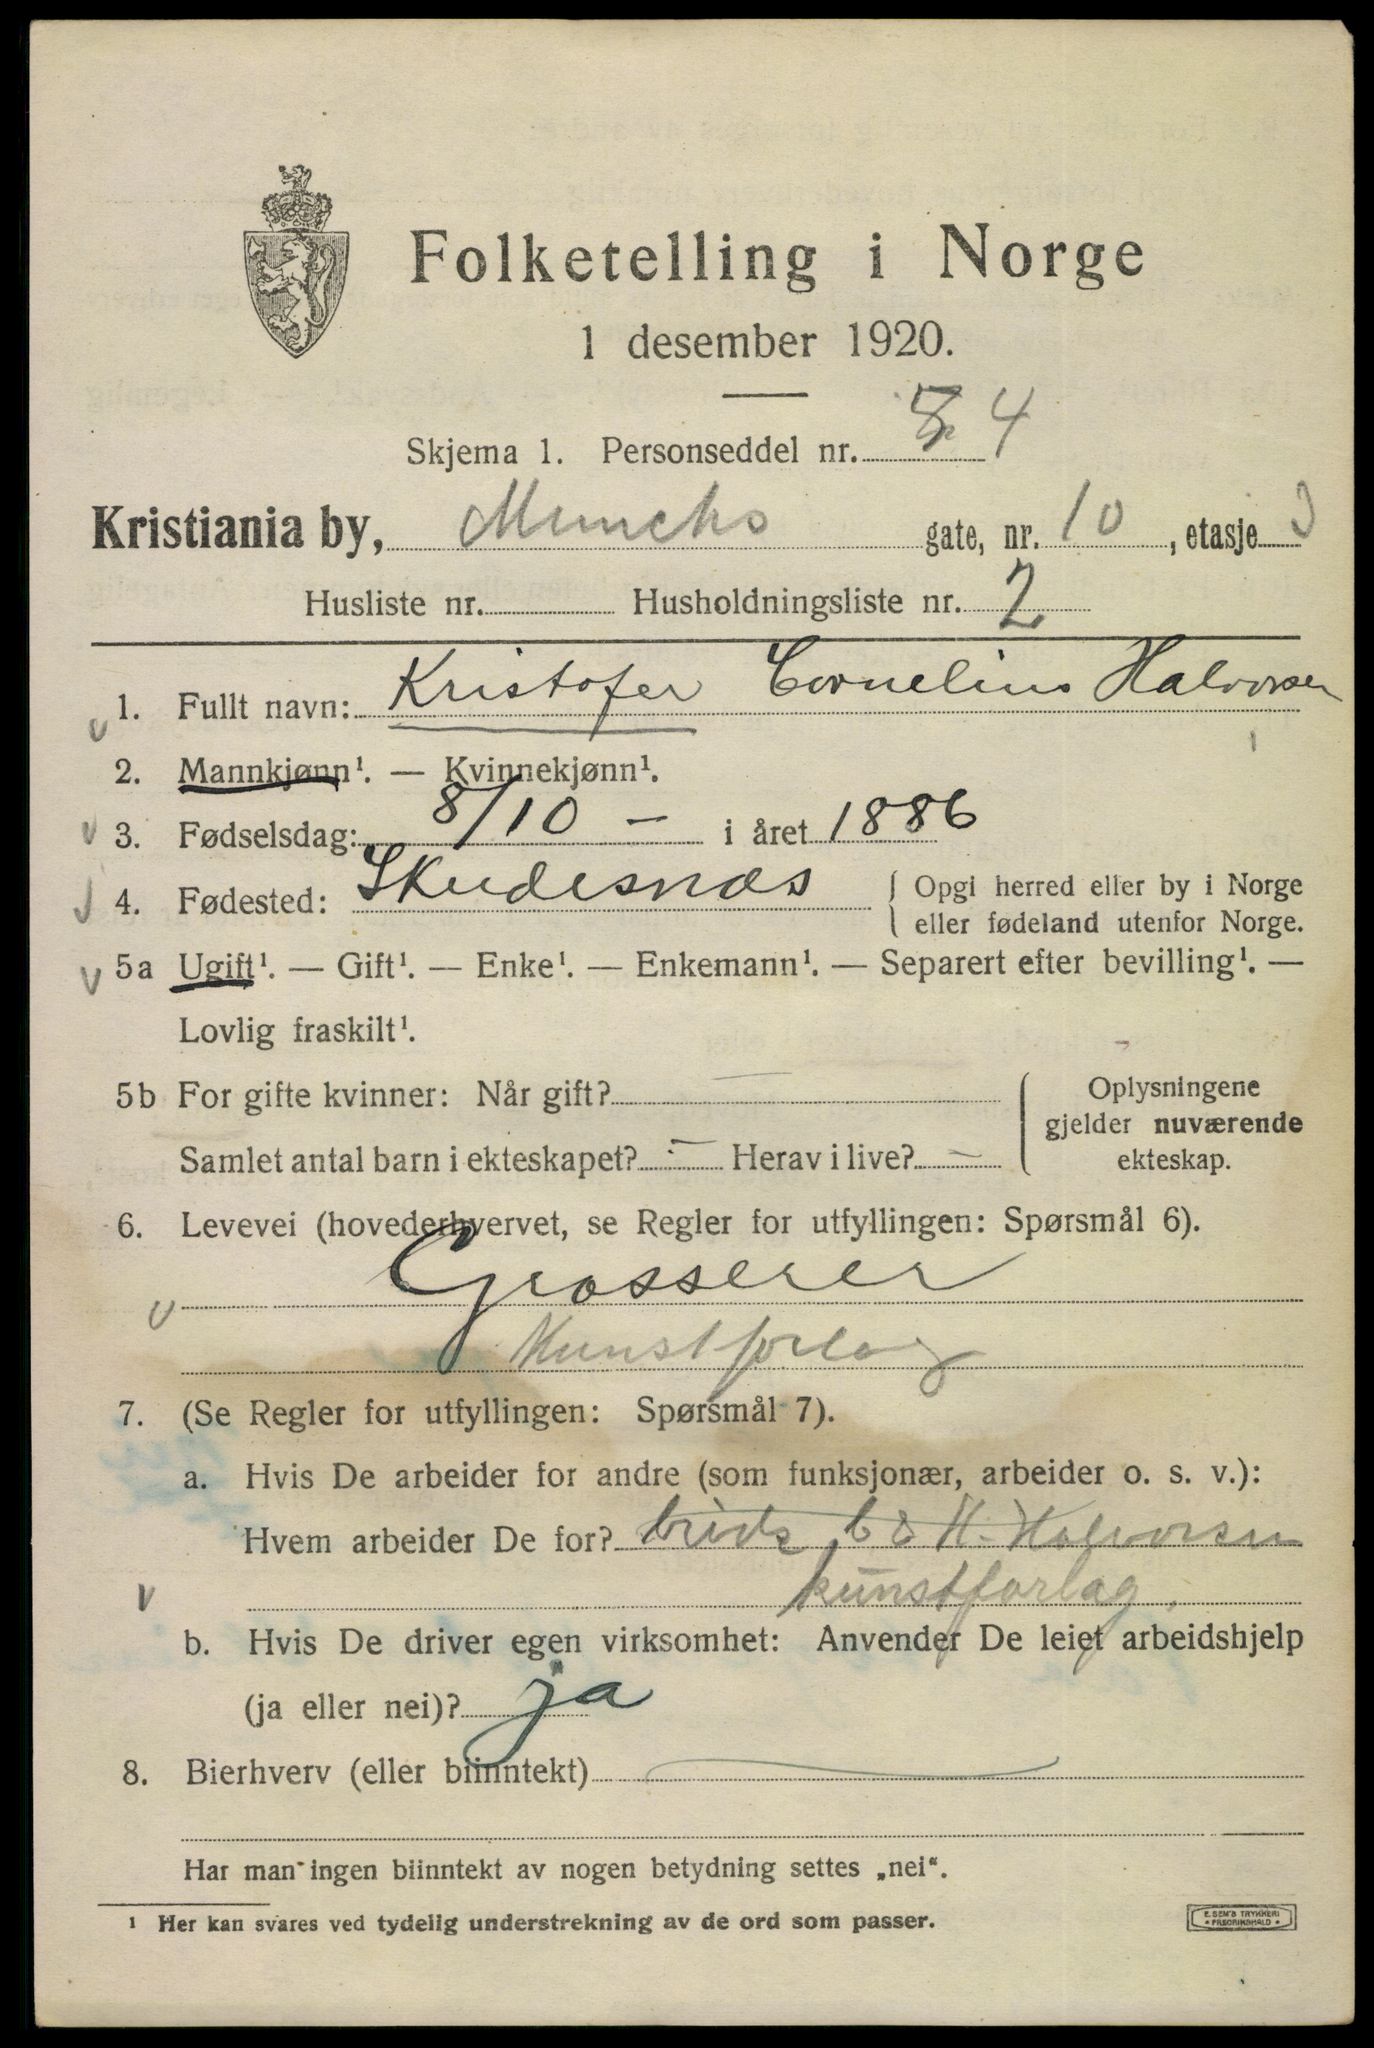 Folketelling i Norge
1 desember 1920.
Skjema 1. Personseddel nr. 4
Kristiania by, Munchs gate, nr. 10, etasje 3
Husliste nr. Husholdningsliste nr. 2
1. Fullt navn: Kristofer Cornelius Halvorsen
2. Mannkjønn¹. — Kvinnekjønn¹.
3. Fødselsdag: 8/10 – i året 1886
4. Fødested: Skudesnæs { Opgi herred eller by i Norge
eller fødeland utenfor Norge.
5a Ugift¹. — Gift¹. — Enke¹. — Enkemann¹. — Separert efter bevilling¹. —
Lovlig fraskilt¹.
5b For gifte kvinner: Når gift? — { Oplysningene
gjelder nuværende
Samlet antal barn i ekteskapet? — Herav i live? — ekteskap.
6. Levevei (hovederhvervet, se Regler for utfyllingen: Spørsmål 6).
Grosserer
Kunstforlag
7. (Se Regler for utfyllingen: Spørsmål 7).
a. Hvis De arbeider for andre (som funksjonær, arbeider o. s. v.):
Hvem arbeider De for? H. Halvorsen
kunstforlag.
b. Hvis De driver egen virksomhet: Anvender De leiet arbeidshjelp
(ja eller nei)? ja
8. Bierhverv (eller biinntekt) —
Har man ingen biinntekt av nogen betydning settes „nei“.
¹ Her kan svares ved tydelig understrekning av de ord som passer.
E. SEM'S TRYKKERI
• FREDRIKSHALD •